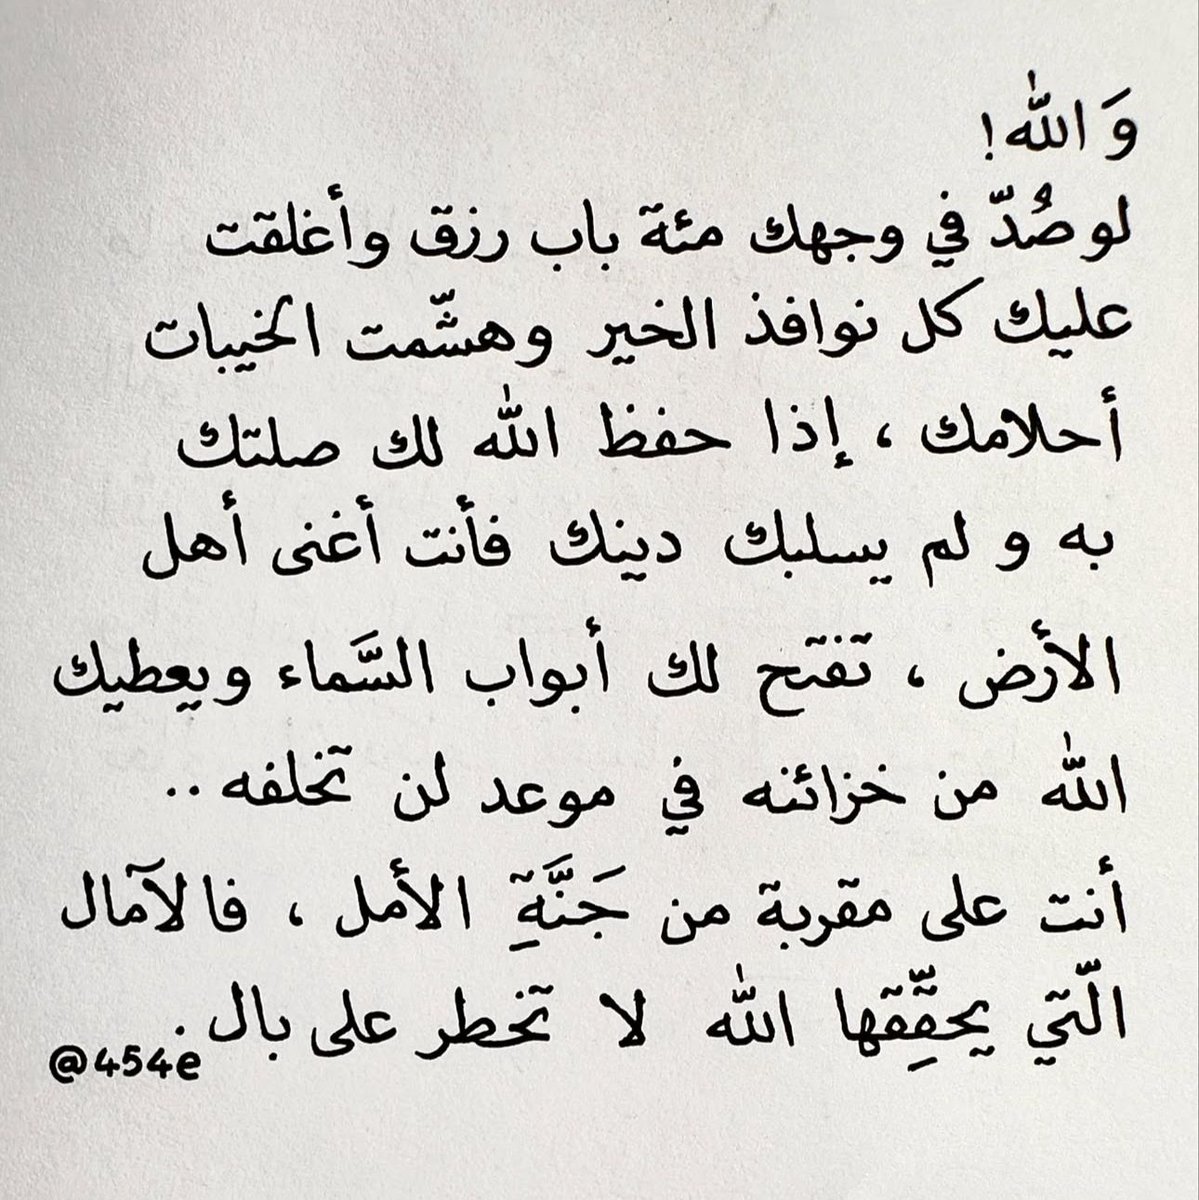 وَ الله!
لو صُدّ في وجهك مئة باب رزق وأغلقت
عليك كل نوافذ الخير وهشّمت الخيبات
أحلامك ، إذا حفظ الله لك صلتك
به و لم يسلبك دينك فأنت أغنى أهل
الأرض ، تفتح لك أبواب السَّماء ويعطيك
الله من خزائنه في موعد لن تخلفه ..
أنت على مقربة من جَنَّةِ الأمل ، فالآمال
الّتي يحقِّقها الله لا تخطر على بال .
@454e